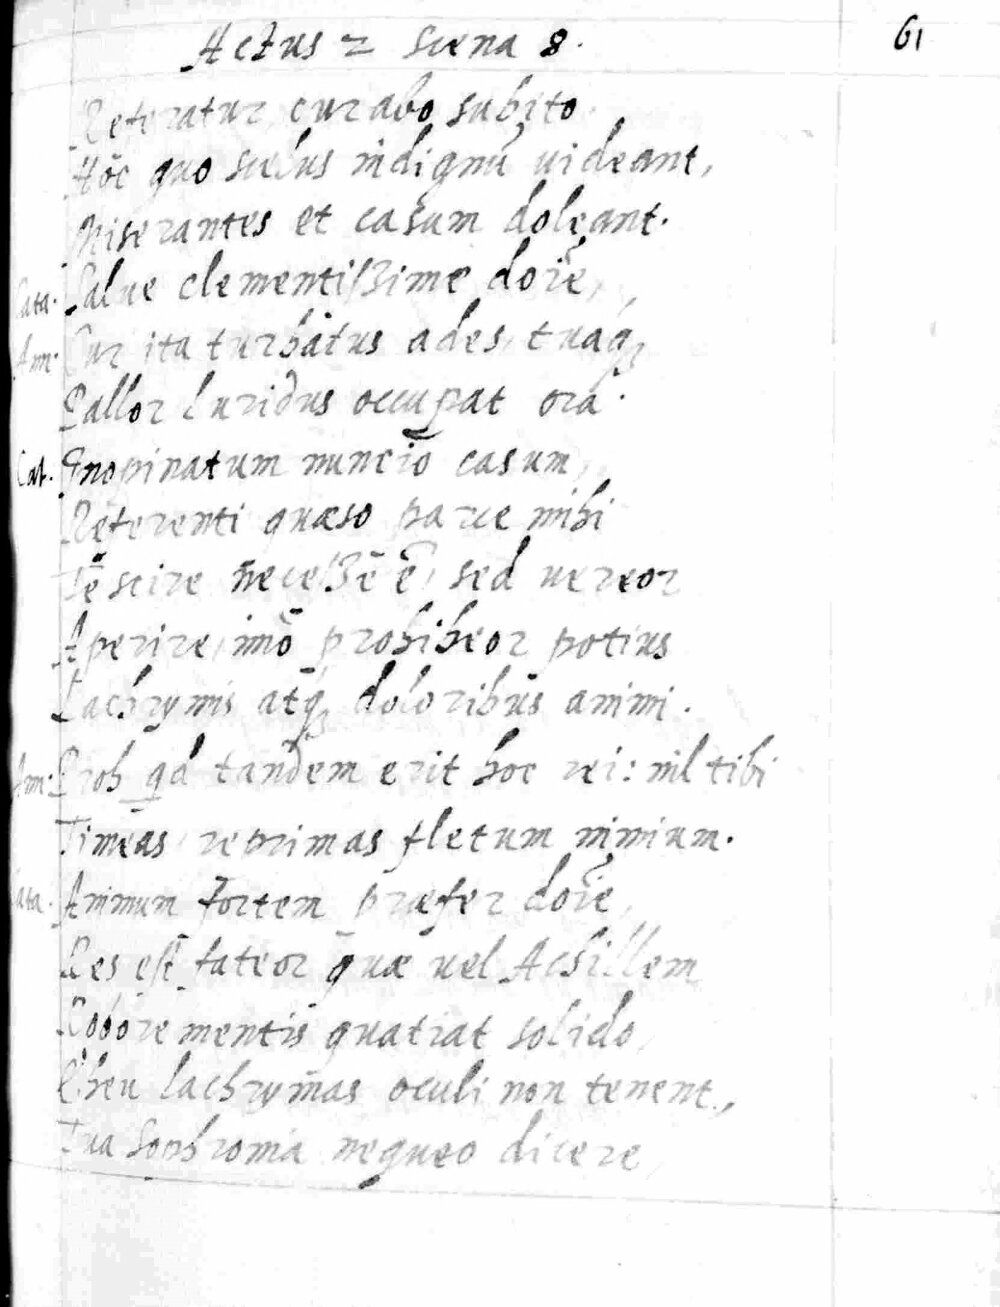 Actus 2 Scena 8. 61
Referatur, curabo subito.
Hōc quo scelus indignū uideant,
Miserantes et casum doleant.
Cata. Salue clementißime doīe,
Am. Cur ita turbatus ades, tuaq;
Pallor luridus occupat ora.
Cat. Inopinatum nuncio casum,
Referenti quæso parce mihi
Tē scire neceßē ē, sed uereor
Aperire, imō prohibeor potius
Lachrymis atq; doloribus animi.
Am: Proh qd tandem erit hoc rei: nil tibi
Timeas, reprimas fletum nimium.
Cata. Animum fortem præfer doīe,
Res est fateor quæ uel Achillem
Robore mentis quatiat solido,
Eheu lachrymas oculi non tenent,
Tua Sophronia nequeo dicere,